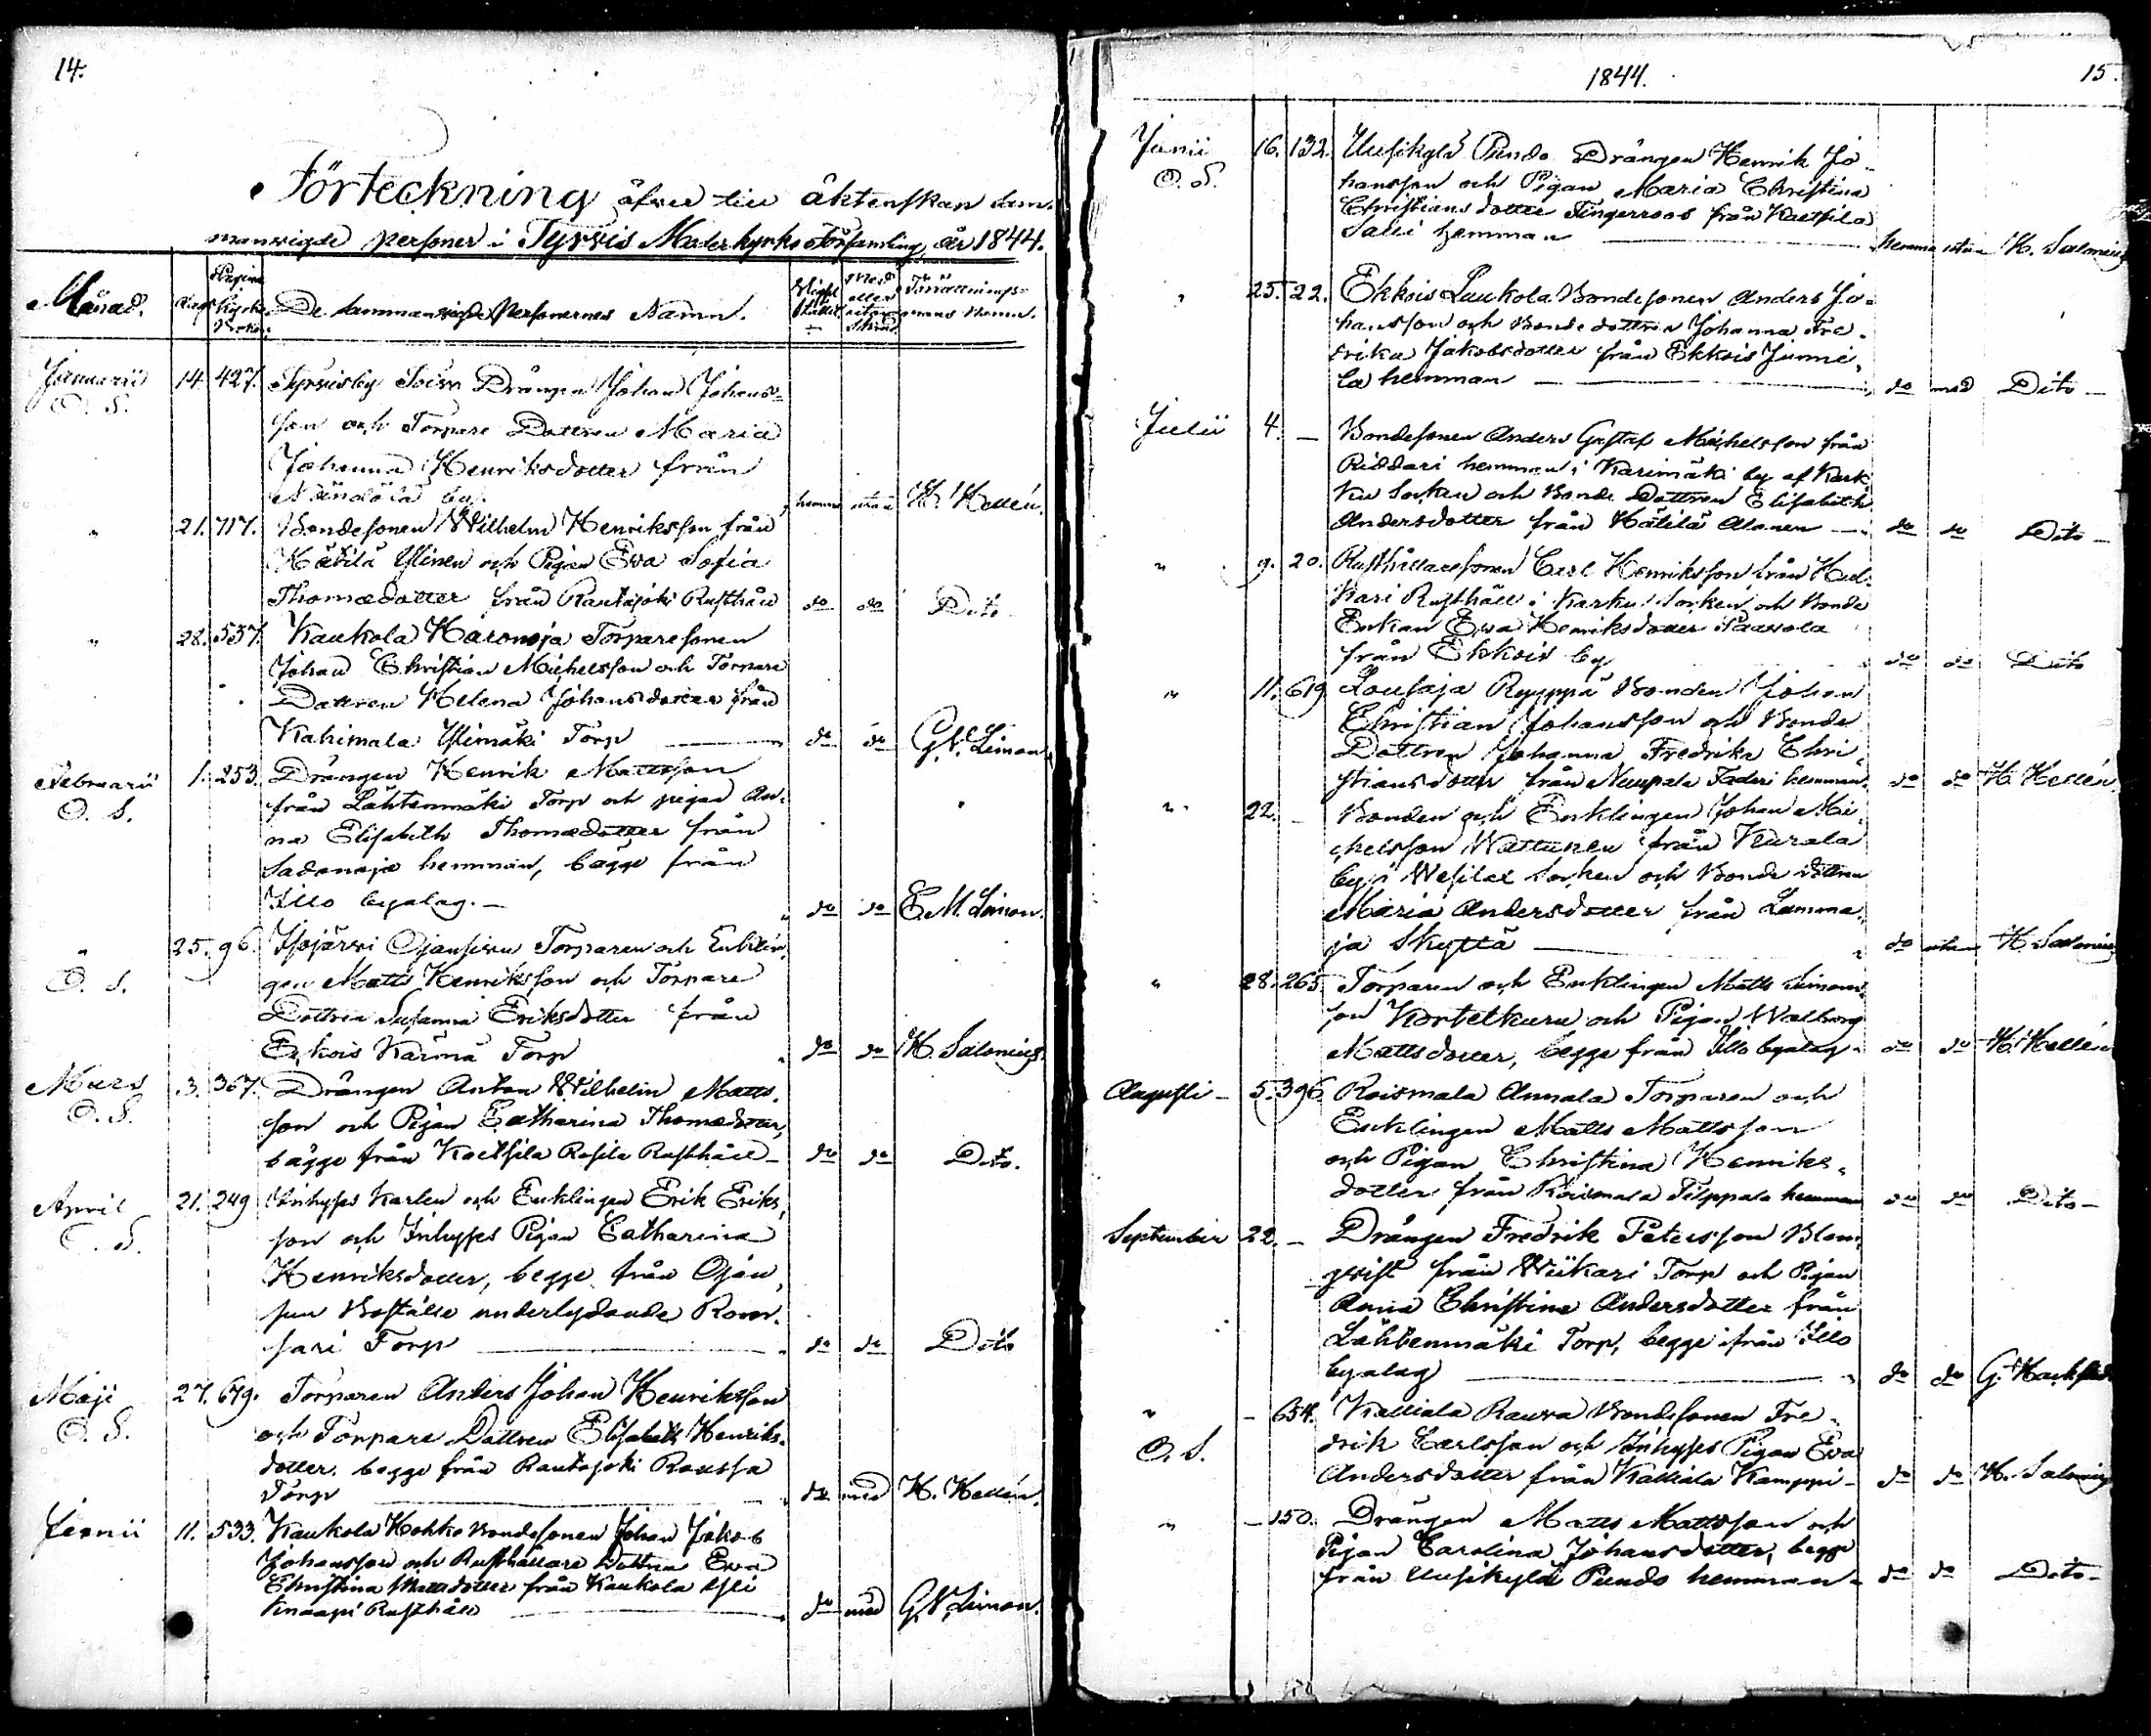 14.
Förteckning öfver till äktenskap sam-
manvigde personer i Tyrvis Moderkyrko Församling år 1844.
Månad.
dag
Pagina Kyrko Boken
De sammanvigde Personernes Namn.
Vigsel stället
Med eller utan
Förrättnings-
mans Namn.
Januarii 14. 427. Tyrvisby Drängen Johan Johans-
O. S.
son och Torpare Dottren Maria
Johanna Henriksdotter från
by hemma utan H. Hellén.
" 21. 717. Bondesonen Wilhelm Henriksson från
Hätilä Ylinen och Pigan Eva Sofia
Thomædotter från Rautajoki Rusthåll do do Dito
" 28. 537. Kaukola Haronoja Torparesonen
Johan Christian Michelsson och Torpare
Dottren Helena Johansdotter från
Kahimala Ylimäki Torp do do G. N. Limon
Februarii 1. 253. Drängen Henrik Mattsson
O. S.
från Lähtenmäki Torp och pigan An-
na Elisabeth Thomædotter från
Sadanoja hemman, bägge från
Illo byalag. — do do E. M. Limon.
" 25. 96. Isojärvi Ojansivu Torparen och Enklin-
O. S.
gen Matts Henriksson och Torpare
Dottren Susanna Eriksdotter från
Ekkois Kärmä Torp do do H. Salonius.
Mars 3. 367. Drängen Anton Wilhelm Matts-
O. S.
son och Pigan Catharina Thomædotter,
bägge från Kaetsila Rusthåll do do Dito.
April 21. 249 Inhyses Karlen och Enklingen Erik Eriks-
O. S.
son och Inhyses Pigan Catharina
Henriksdotter, begge från Ojan-
suu Boställe underlydande
Torp do do Dito
Maji 27. 679. Torparen Anders Johan Henriksson
O. S.
och Torpare Dottren Elisabeth Henriks-
dotter begge från Rautajoki
Torp do med H. Hellén.
Junii 11. 533. Kaukola Hohko Bondesonen Johan Jakob
Johansson och Rusthållare Dottren Eva
Christina Mattsdotter från Kaukola Yli
Knaapi Rusthåll do med G. N. Limon.
1844.
15.
Junii 16. 132. Uusikylä Pundo Drängen Henrik Jo-
O. S.
hansson och Pigan Maria Christina
Christiansdotter Tingerroos från Kaetsila
Salli hemman hemma utan H. Salonius
" 25. 22. Ekkois Laukola Bondesonen Anders Jo-
hansson och Bonde dottren Johanna Fre-
drika Jakobsdotter från Ekkois Junni-
la hemman do med Dito
Julii 4. — Bondesonen Anders Gustaf Michelsson från
Riddari hemman i Karimäki by af Kark-
ku Socken och Bonde Dottren Elisabeth
Andersdotter från Hätilä Alanen do do Dito
" 9. 20. Rusthållaresonen Carl Henriksson från
Rusthåll i Karku Socken och Bonde
Enkan Eva Henriksdotter Paavola
från Ekkois by do do Dito
" 11. 619 Lousaja Ryyppä Bonden Johan
Christian Johansson och Bonde
Dottren Johanna Fredrika Chri-
stiansdotter från Nuupala Saderi hemman do do H. Hellén
" 22. — Bonden och Enklingen Johan Mi-
chelsson Wattunen från Kurala
by i Wesilax Socken och Bonde dottren
Maria Andersdotter från Lamma-
ja Skyttä do utan H. Salonius
" 28. 265. Torparen och Enklingen Matts Simons-
son Kortetkuru och Pigan Walborg
Mattsdotter, begge från Illo byalag do do H. Hellén
Augusti 5. 396. Roismala Annala Torparen och
Enklingen Matts Mattsson
och Pigan Christina Henriks-
dotter från Roismala Filppala hemman do do Dito
September 22. — Drängen Fredrik Petersson Blom-
qvist från Wiikari Torp och Pigan
Anna Christina Andersdotter från
Lähtenmäki Torp, begge ifrån Illo
byalag do do G.
" — 654. Kalliala Rauva Bondesonen Fre-
O. S.
drik Carlsson och Inhyses Pigan Eva
Andersdotter från Kalliala Kamppi do do H. Salonius
" — 150. Drängen Matts Mattsson och
Pigan Carolina Johansdotter, begge
från Uusikylä Pundo hemman do do Dito